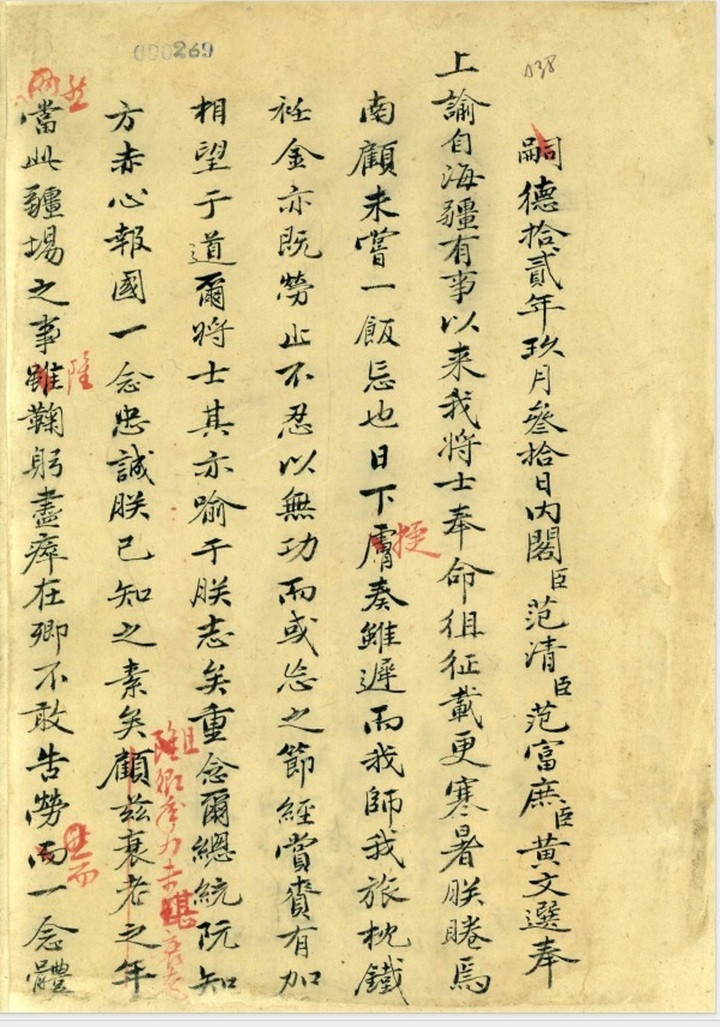 000269
038
嗣德拾貳年玖月叄拾日內閣臣范清臣范富庶臣黃文選奉
上諭自海疆有事以來我將士奉命徂征載更寒暑朕睠焉
南顧未嘗一飯忘也日下膚奏雖遲而我師我旅枕鐵
衽金亦既勞止不忍以無功而或忘之節經賞賚有加
相望于道爾將士其亦喻于朕志矣重念爾總統阮知
方赤心報國一念忠誠朕已知之素矣顧茲衰老之年
當此疆場之事雖鞠躬盡瘁在卿不敢告勞而一念體
捷
且
卿
力未堪衰老
然
而